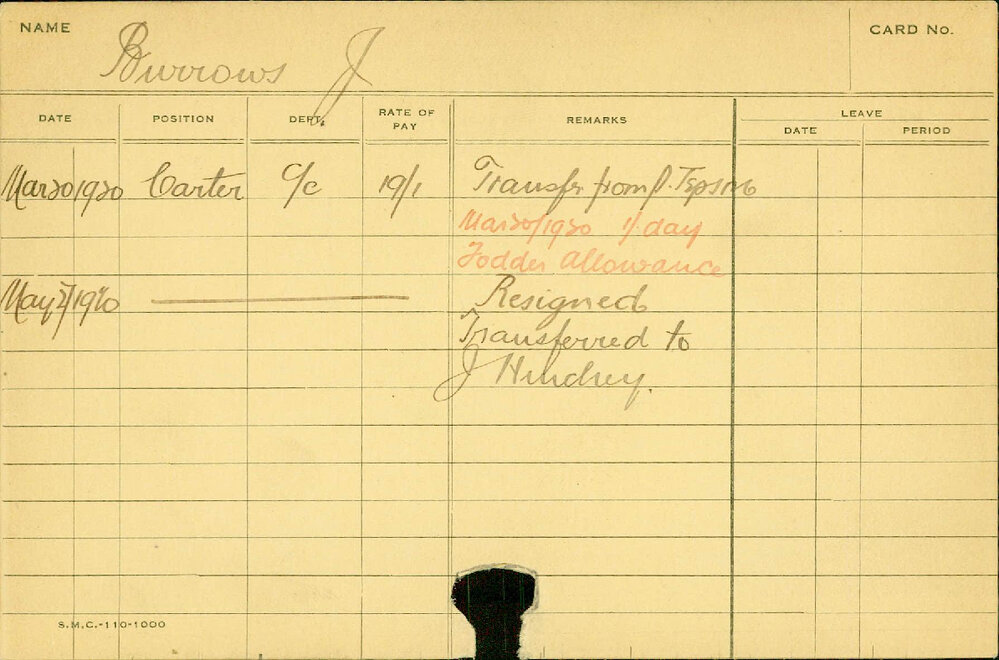 NAME
Burrows J
CARD No.
DATE
POSITION
DEPT.
RATE OF PAY
REMARKS
LEAVE
DATE
PERIOD
Mar 20 1920 Carter C/C 19/1 Transfer from J.
Mar 20/1920 1/ day
Fodder Allowance
May 1920 Resigned
Transferred to
J
S.M.C.-110-1000